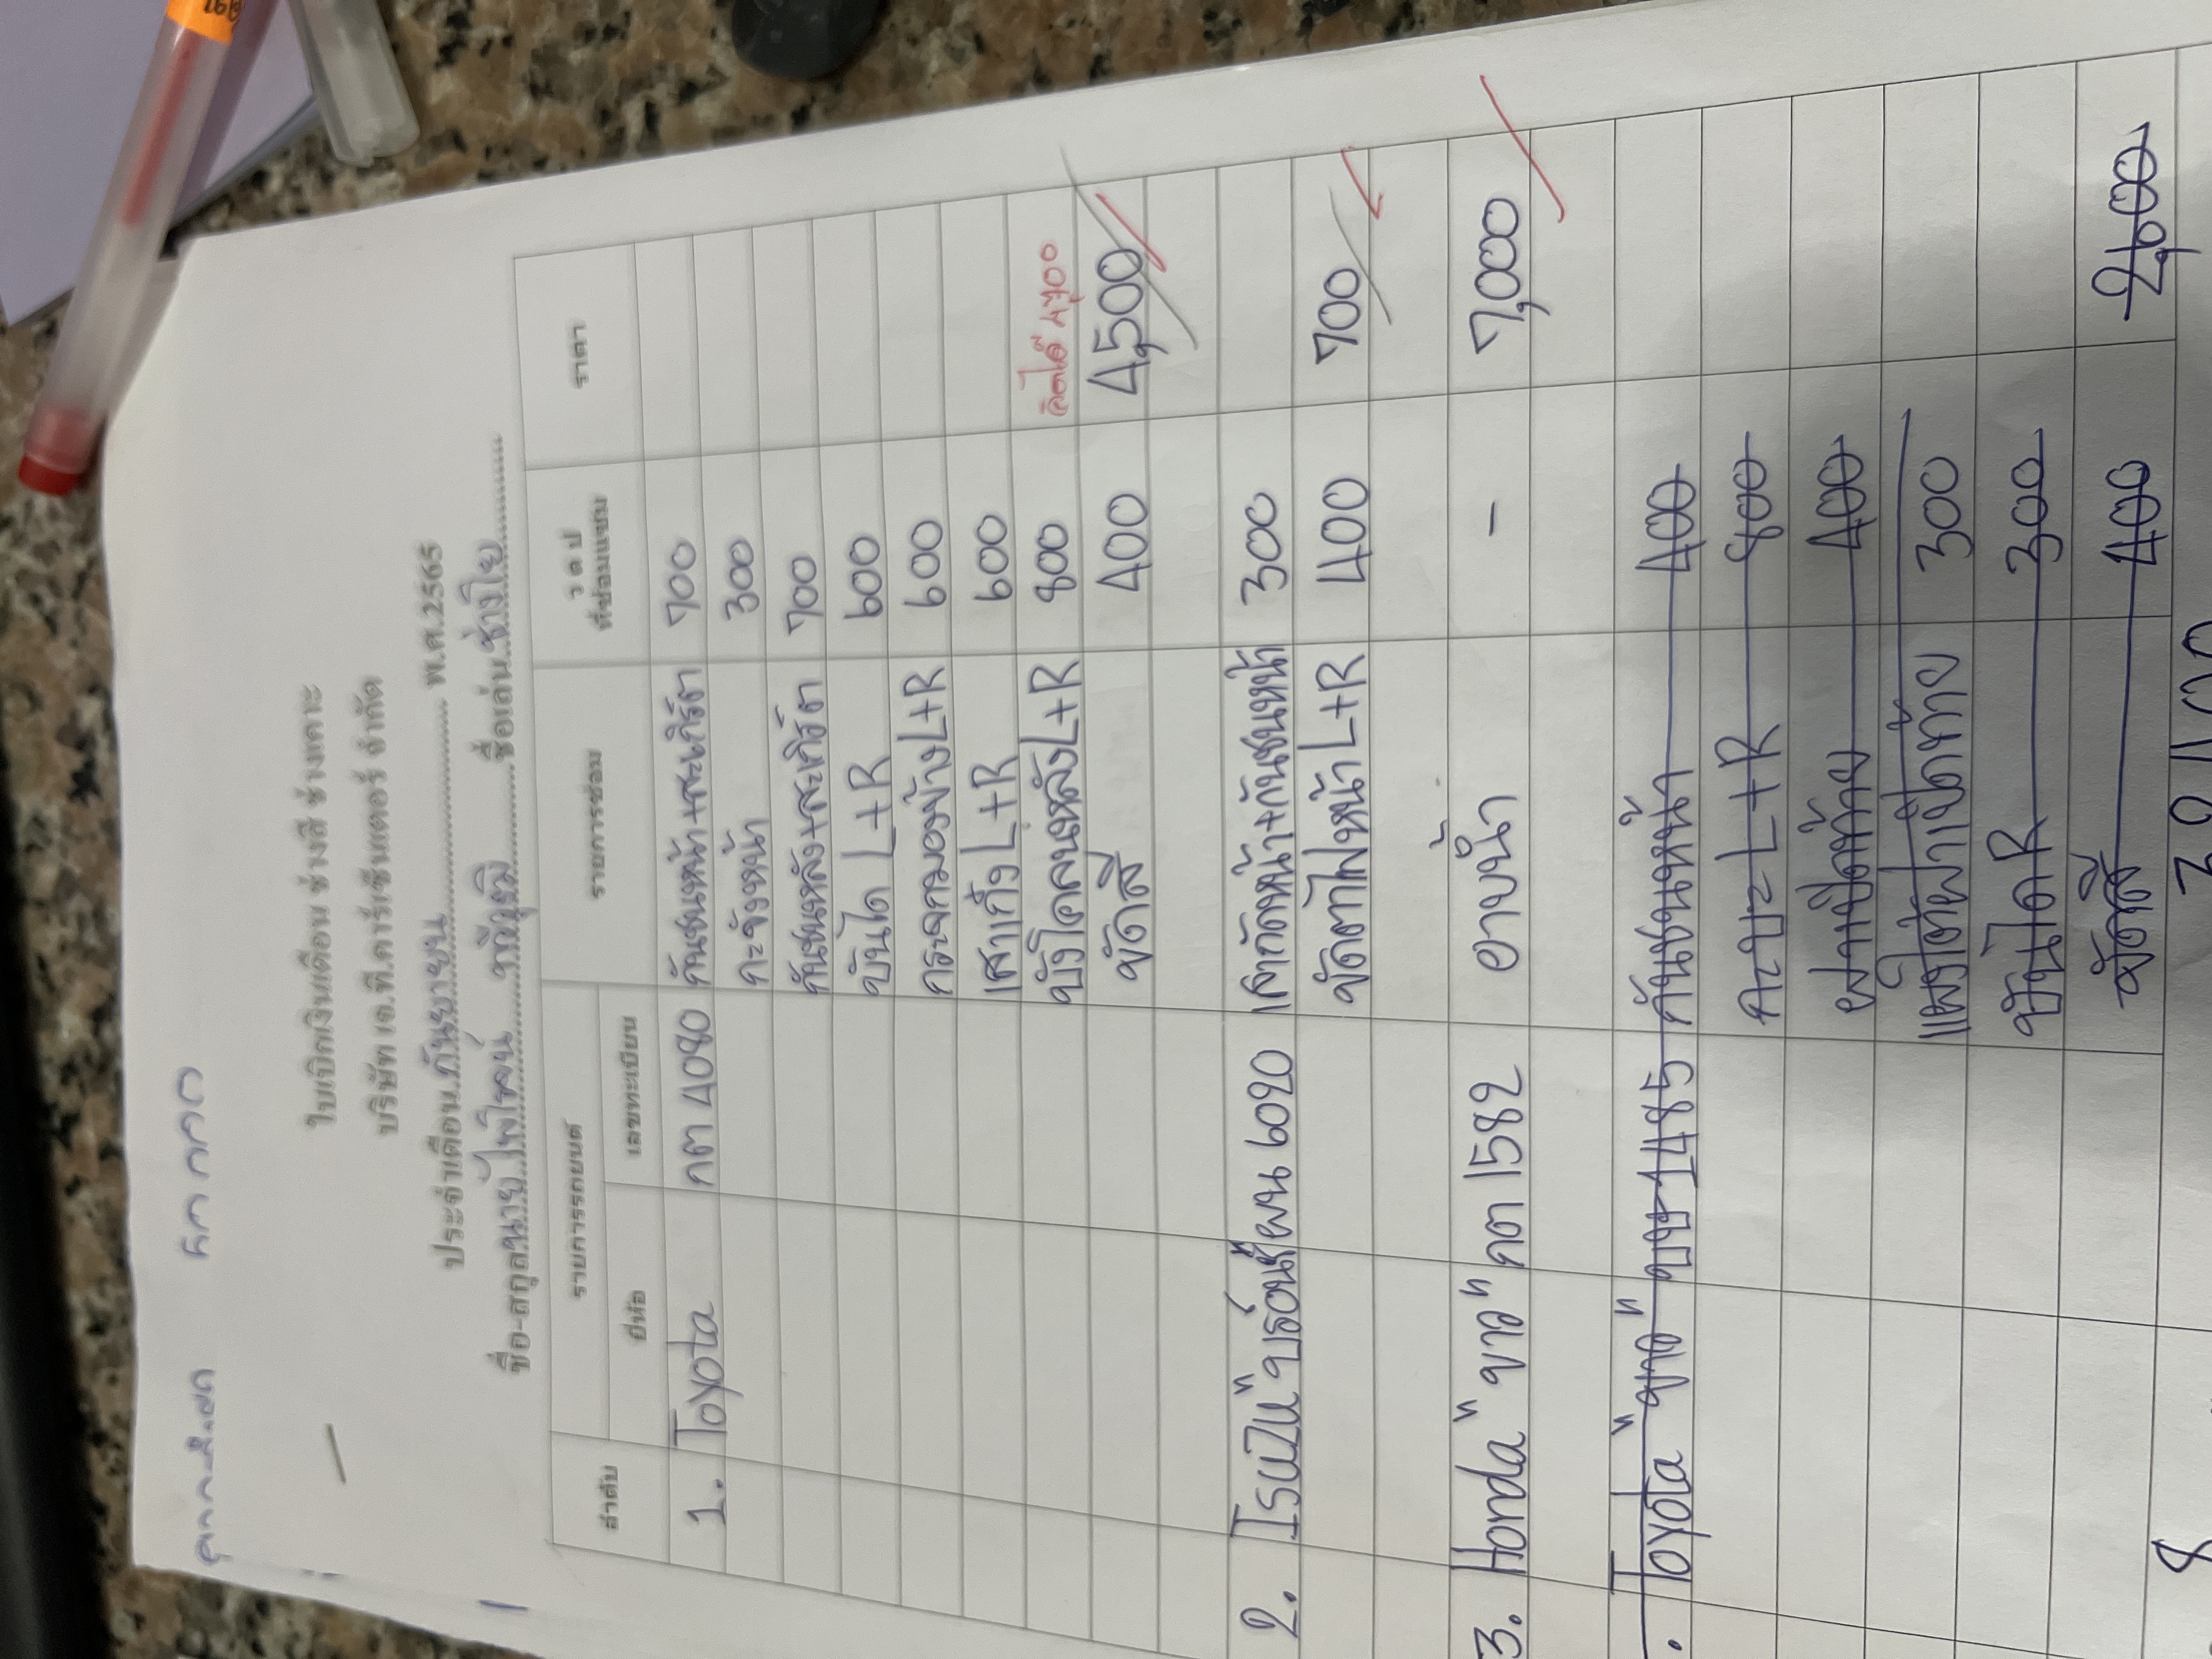 ใบเบิกเงินเดือน ช่างสี ช่างเคาะ
บริษัท เจ.พี.คาร์เซ็นเตอร์ จำกัด
ประจำเดือน กันยายน พ.ศ.2565
ชื่อ-สกุล นายไพโรจน์ ทวีวุฒิ ชื่อเล่น ช่างโย
ลำดับ รายการรถยนต์ รายการซ่อม ว ด ป ที่ซ่อมแซม ราคา
ยี่ห้อ เลขทะเบียน
1. Toyota กต 4080 กันชนหน้า+สะเกิร์ต 700
กะจังหน้า 300
กันชนหลัง+สะเกิร์ต 700
บันได L+R 600
กระจกมองข้าง L+R 600
เสาเก๋ง L+R 600
บังโคลนหลัง L+R 800 คิดได้ 4700
ขัดสี 400 4,500
2. "บรอนซ์" ผน 6020 เสากัดหน้า+กันชนหน้า 300
ขัดตาไฟหน้า L+R 400 700
3. Honda "ขาว" กต 1582 อาบน้ำ - 7,000
Toyota "ขาว" กันชนหน้า 400
คะบะ L+R 800
ฝาเปิดท้าย 400
แผงใต้ฝาเปิดท้าย 300
บันได R 300
ขัดสี 400 2,600